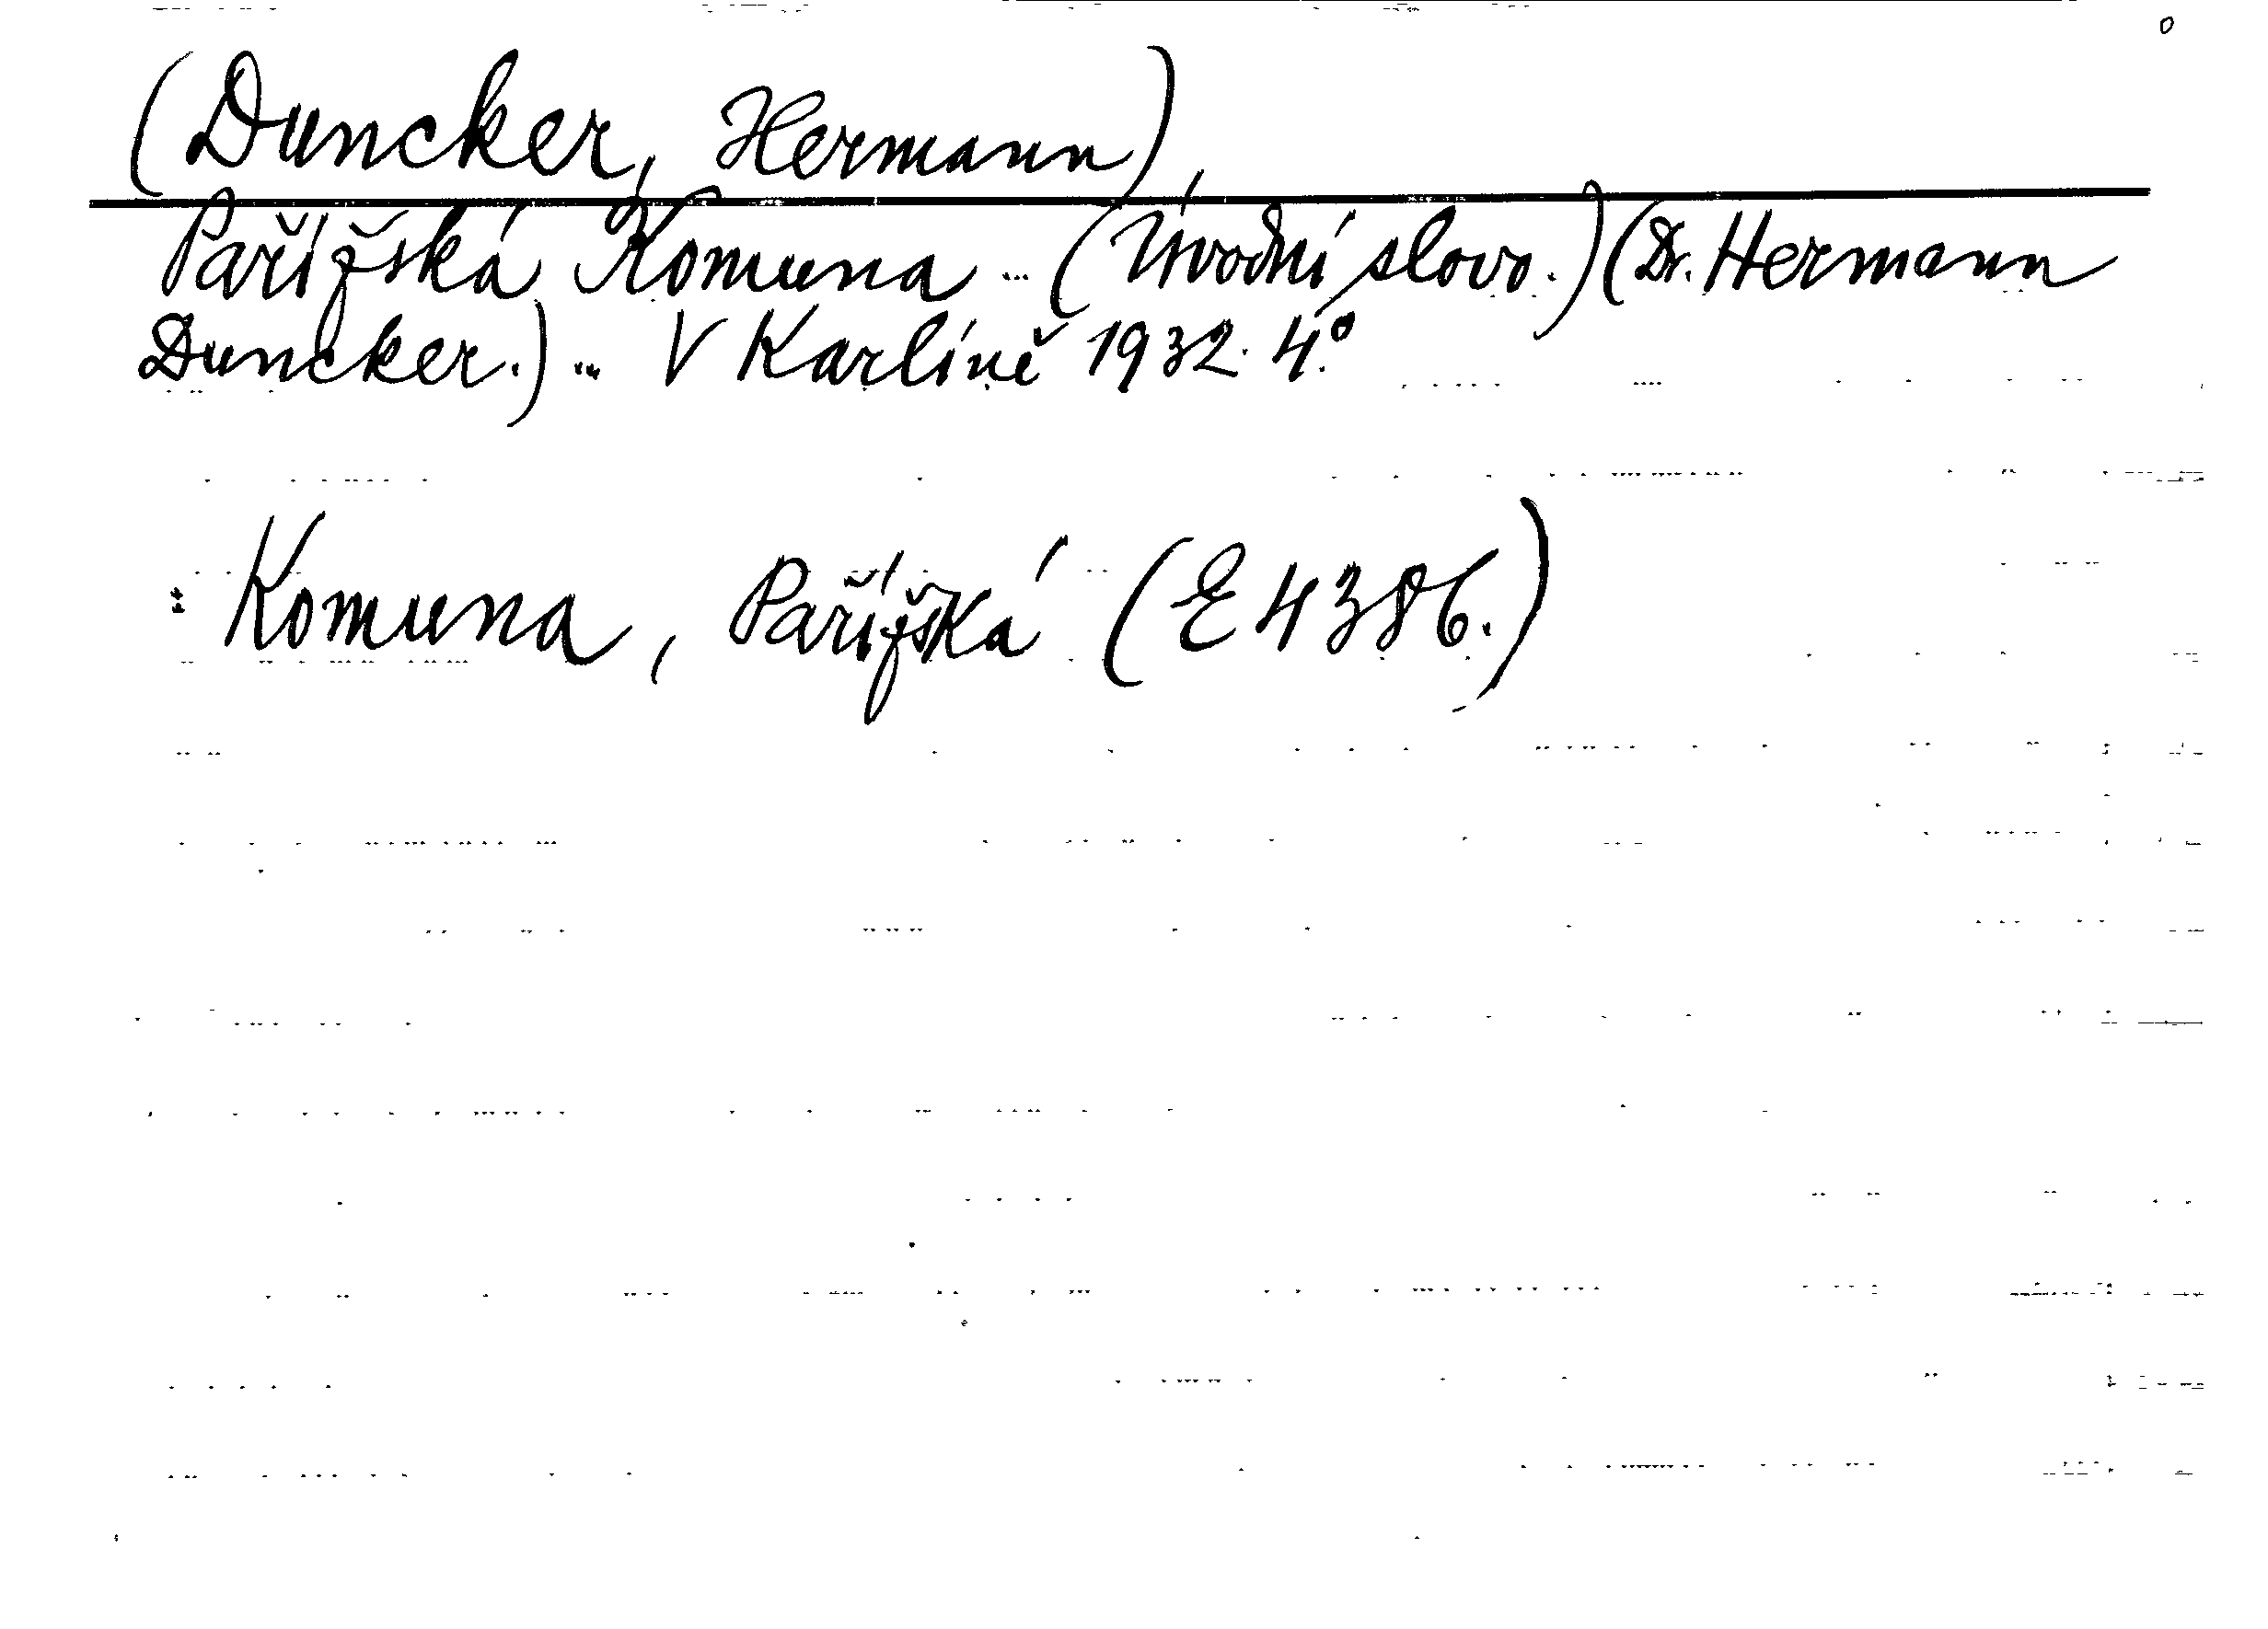 (Duncker, Hermann),
Pařížská Komuna ... (Úvodní slovo.) (Dr. Hermann
Duncker.) ... V Karlíně 1932. 4.°
: Komuna, Pařížská (E 4386.)